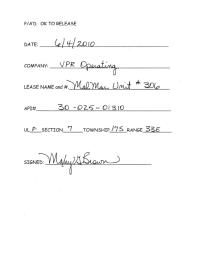 P/A'D. OK TO RELEASE
DATE: 6/4/2010
COMPANY: VPR Operating
LEASE NAME and # MalMar Unit # 306
API# 30-025-01310
UL P SECTION 7 TOWNSHIP 17S RANGE 33E
SIGNED: Maley G Brown